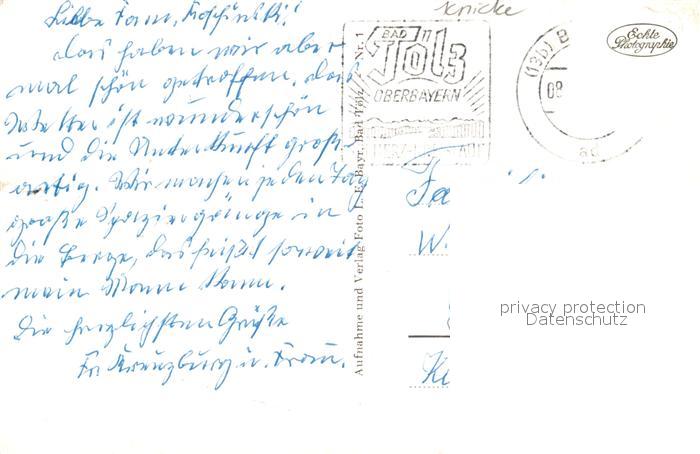 schicke
Liebe Fam.
das haben wir aber
mal schön getroffen. das
Wetter ist wunderschön
und die Unterkunft groß-
artig. Wir machen jeden Tag
große Spaziergänge in
die Berge, das heißt soweit
mein Mann kann.
Die herzlichsten Grüße
Fr. Kreuzburg u. Frau.
BAD
Tölz
OBERBAYERN
(13b) B
08
ad
Echte
Photographie
Aufnahme und Verlag Foto L. E. Bayr, Bad Tölz / Nr. 1
Fa
W.
privacy protection
Datenschutz